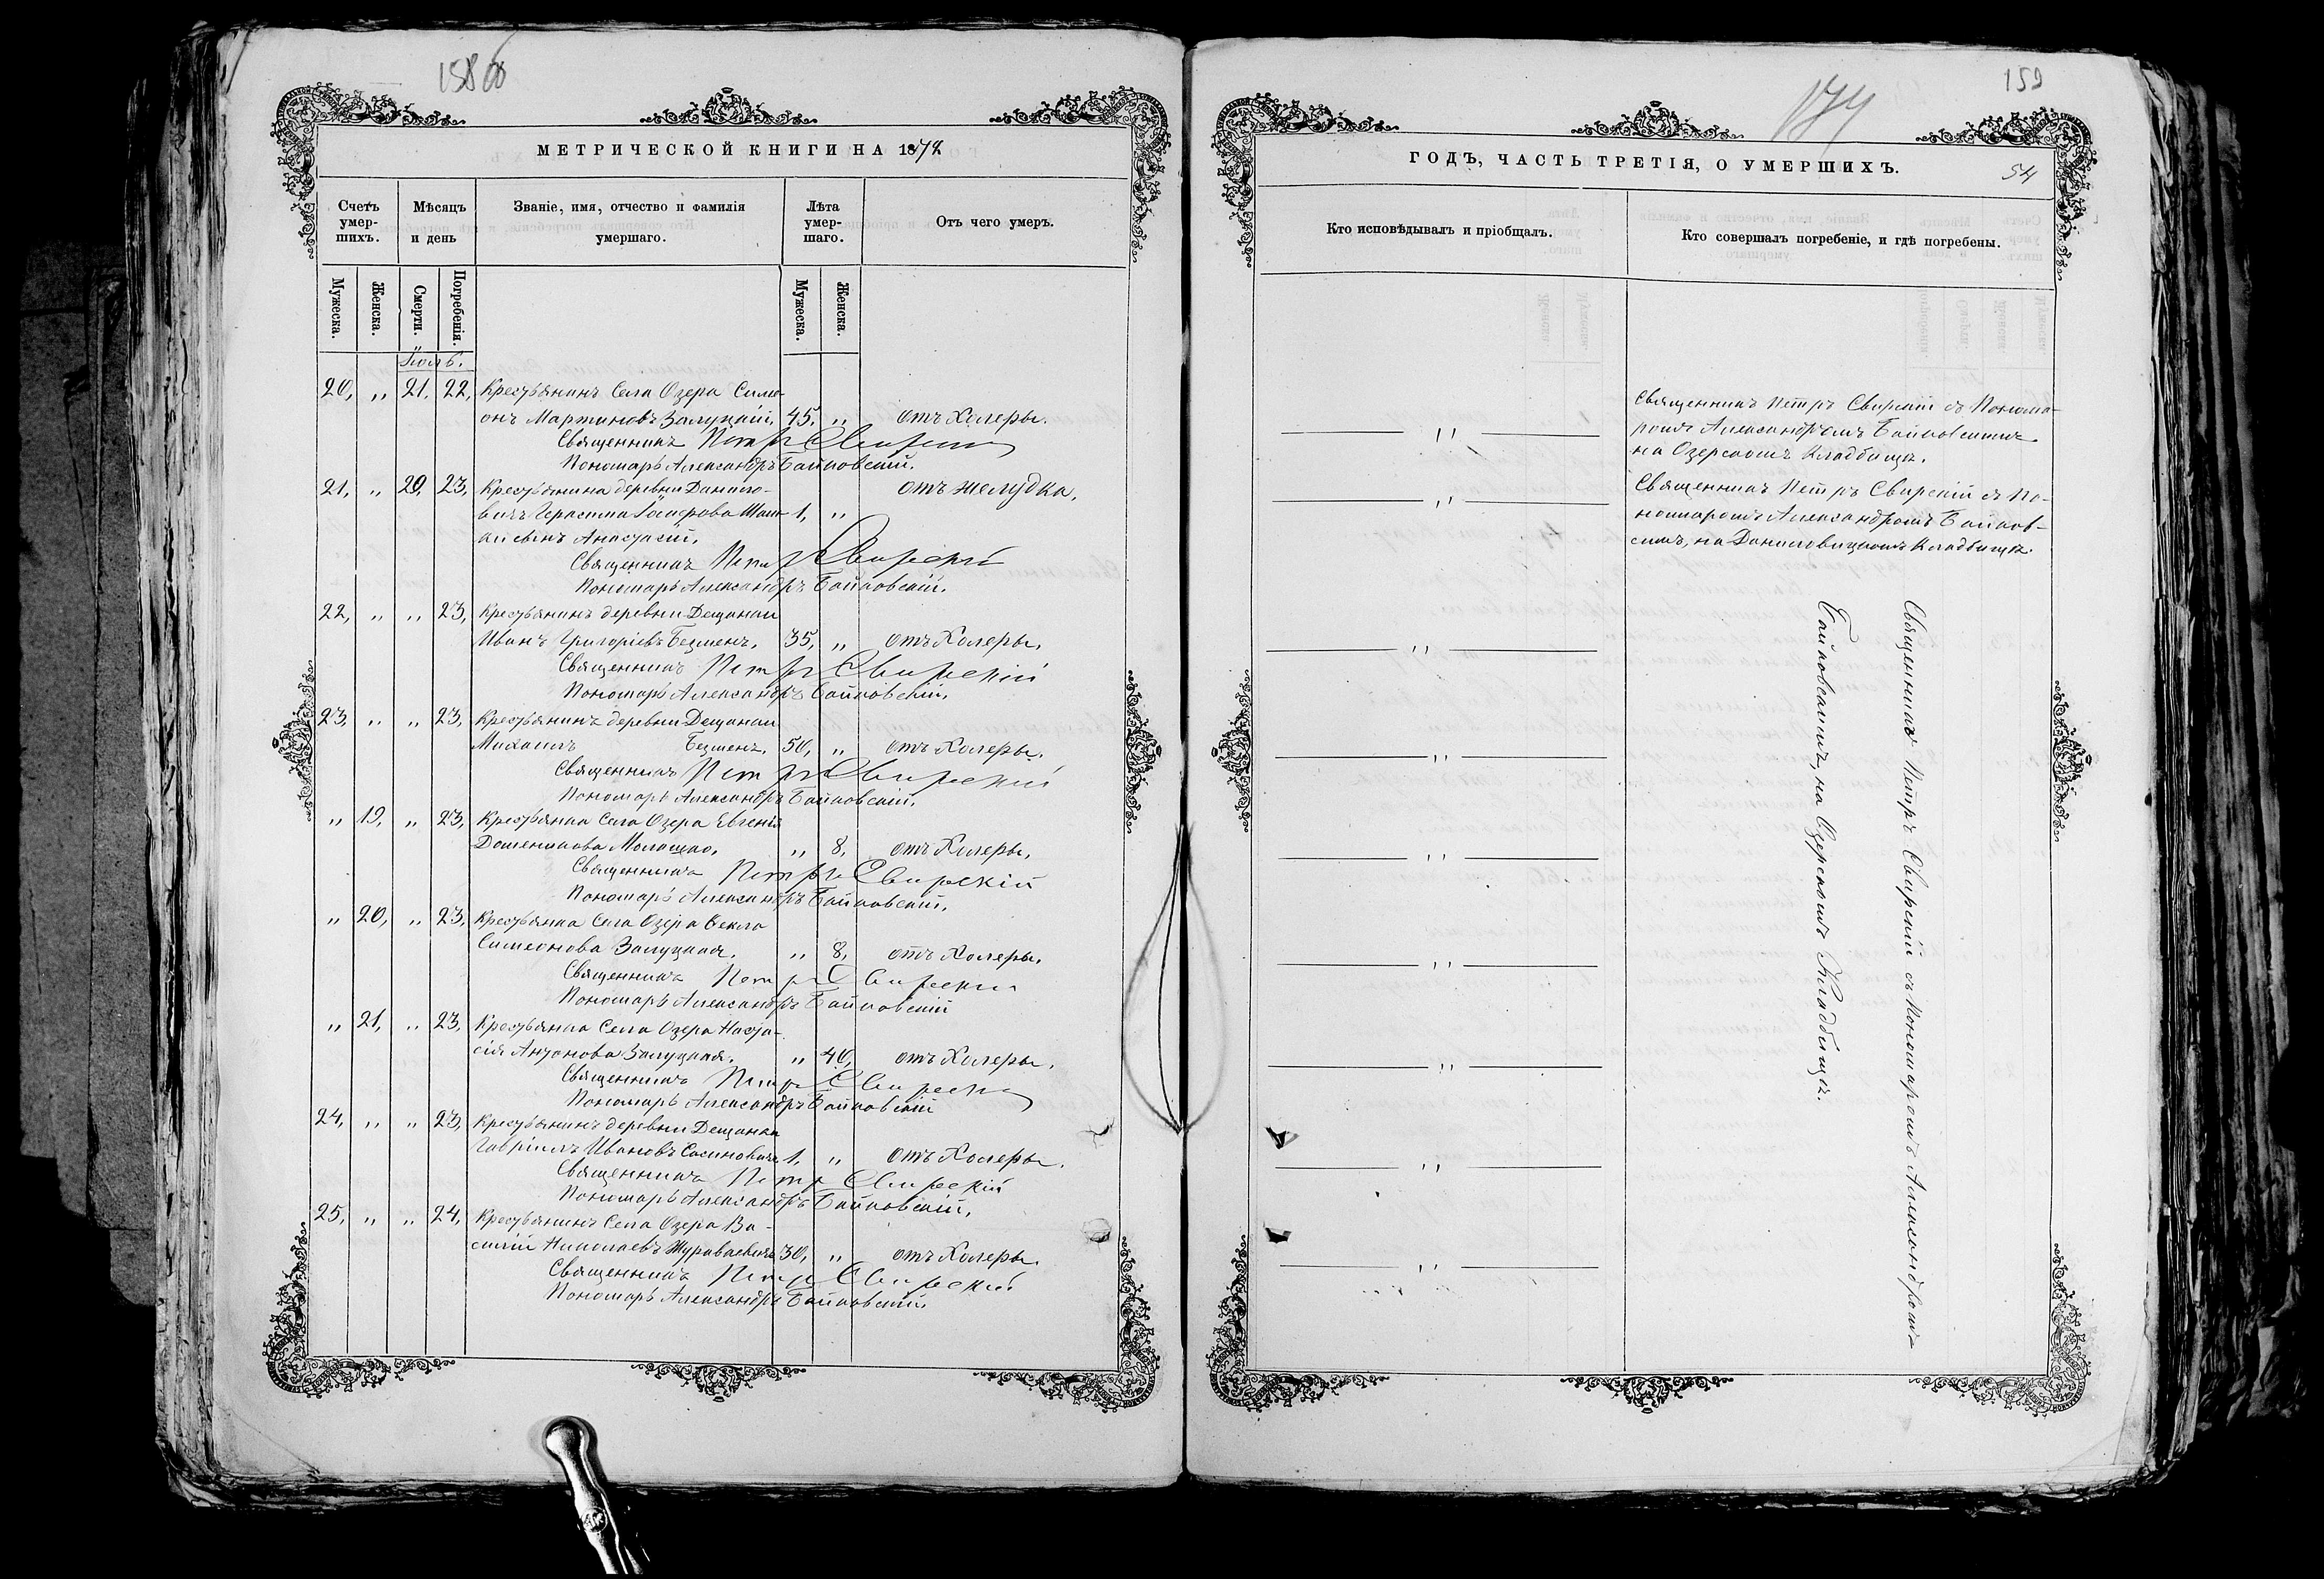 158 об
МЕТРИЧЕСКОЙ КНИГИ НА 1872
Счетъ умер-шихъ.
Мѣсяцъ и день
Званіе, имя, отчество и фамилія умершаго.
Лѣта умер-шаго.
Отъ чего умеръ.
Мужеска. Женска. Смерти. Погребенія. Мужеска. Женска.
Іюль.
20, „ 21, 22, Крестьянинъ Села Озера Симе-
онъ Мартиновъ Залуцкій, 45, „ отъ Холеры.
Священникъ Петръ Свирскій
Пономарь Александръ Байковскій.
21, „ 20, 23, Крестьянина деревни Данило-
вичъ Герасима 1, „ отъ желудка,
сынъ Анастасій,
Священникъ Петръ Свирскій
Пономарь Александръ Байковскій.
22, „ „ 23, Крестьянинъ деревни Дещанки
Иванъ Григоріевъ Безменъ, 35, „ отъ Холеры,
Священникъ Петръ Свирскій
Пономарь Александръ Байковскій,
23, „ „ 23, Крестьянинъ деревни Дещанки
Михаилъ Безменъ, 50, „ отъ Холеры,
Священникъ Петръ Свирскій
Пономарь Александръ Байковскій,
„ 19, „ 23, Крестьянка Села Озера Евгенія
„ 8, отъ Холеры,
Священникъ Петръ Свирскій
Пономарь Александръ Байковскій,
„ 20, „ 23, Крестьянка Села Озера Ѳекла
Симеонова Залуцкая, „ 8, отъ Холеры,
Священникъ Петръ Свирскій
Пономарь Александръ Байковскій
„ 21, „ 23, Крестьянка Села Озера Наста-
сія Антонова Залуцкая, „ 40, отъ Холеры,
Священникъ Петръ Свирскій
Пономарь Александръ Байковскій
24, „ „ 23, Крестьянинъ деревни Дещанки
Гавріилъ Ивановъ Сосиновичъ 1, „ отъ Холеры,
Священникъ Петръ Свирскій
Пономарь Александръ Байковскій,
25, „ „ 24, Крестьянинъ Села Озера Ва-
силій Николаевъ 30, „ отъ Холеры
Священникъ Петръ Свирскій
Пономарь Александръ Байковскій
159
174
ГОДЪ, ЧАСТЬ ТРЕТІЯ, О УМЕРШИХЪ.
54
Кто исповѣдывалъ и пріобщалъ.
Кто совершалъ погребеніе, и гдѣ погребены.
Священникъ Петръ Свирскій съ Понома-
„ ромъ Александромъ Байковскимъ
на Озерскомъ Кладбищѣ.
Священникъ Петръ Свирскій съ По-
„ номаромъ Александромъ Байков-
симъ, на Даниловицкомъ Кладбищѣ.
„
„
„
„
„
„
„
Священникъ Петръ Свирскій съ Пономаромъ Александромъ
Байковскимъ, на Озерскомъ Кладбищѣ.